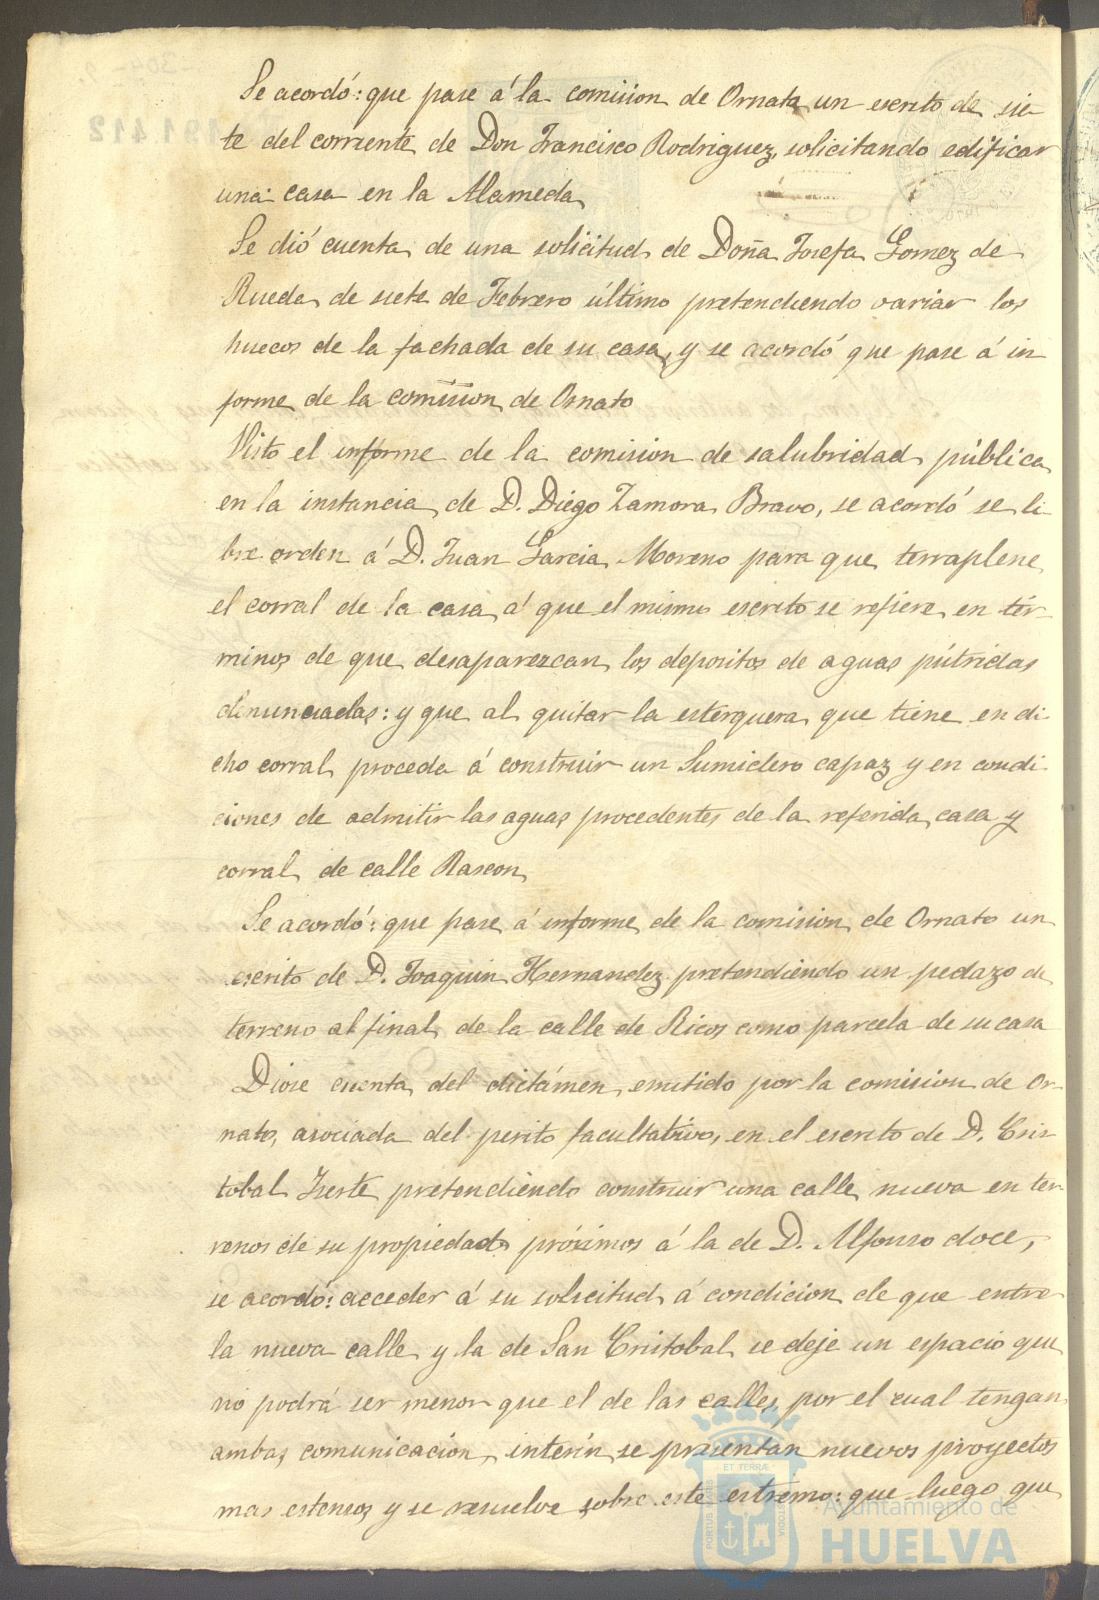 Se acordó: que pase á la comision de Ornato un escrito de sie-
te del corriente de Don Francisco Rodriguez, solicitando edificar
una casa en la Alameda
Se dió cuenta de una solicitud de Doña Josefa Gomez de
Rueda de siete de Febrero último pretendiendo variar los
huecos de la fachada de su casa, y se acordó que pase á in
forme de la comision de Ornato
Visto el informe de la comision de salubridad pública
en la instancia de D. Diego Zamora Bravo, se acordó se li-
bre orden á D. Juan Garcia Moreno para que terraplene
el corral de la casa á que el mismo escrito se refiere en tér-
minos de que desaparezcan los depositos de aguas pútridas
denunciadas: y que al quitar la esterquera que tiene en di-
cho corral proceda á construir un Sumidero capaz y en condi-
ciones de admitir las aguas procedentes de la referida casa y
corral de calle Rascon
Se acordó: que pase á informe de la comision de Ornato un
escrito de D. Joaquin Hernandez pretendiendo un pedazo de
terreno al final de la calle de Ricos como parcela de su casa
Diose cuenta del dictámen emitido por la comision de Or-
nato, asociada del perito facultativo, en el escrito de D. Cris-
tobal pretendiendo construir una calle nueva en ter-
renos de su propiedad próximos á la de D. Alfonso doce,
se acordó: acceder á su solicitud á condicion de que entre
la nueva calle y la de San Cristobal se deje un espacio que
no podrá ser menor que el de las calles, por el cual tengan
ambas comunicacion, interin se presentan nuevos proyectos
mas estensos y se resuelve sobre este estremo: que luego que
191412
PORTUS MARIS
ET TERRÆ
CUSTODIA
Ayuntamiento de
HUELVA